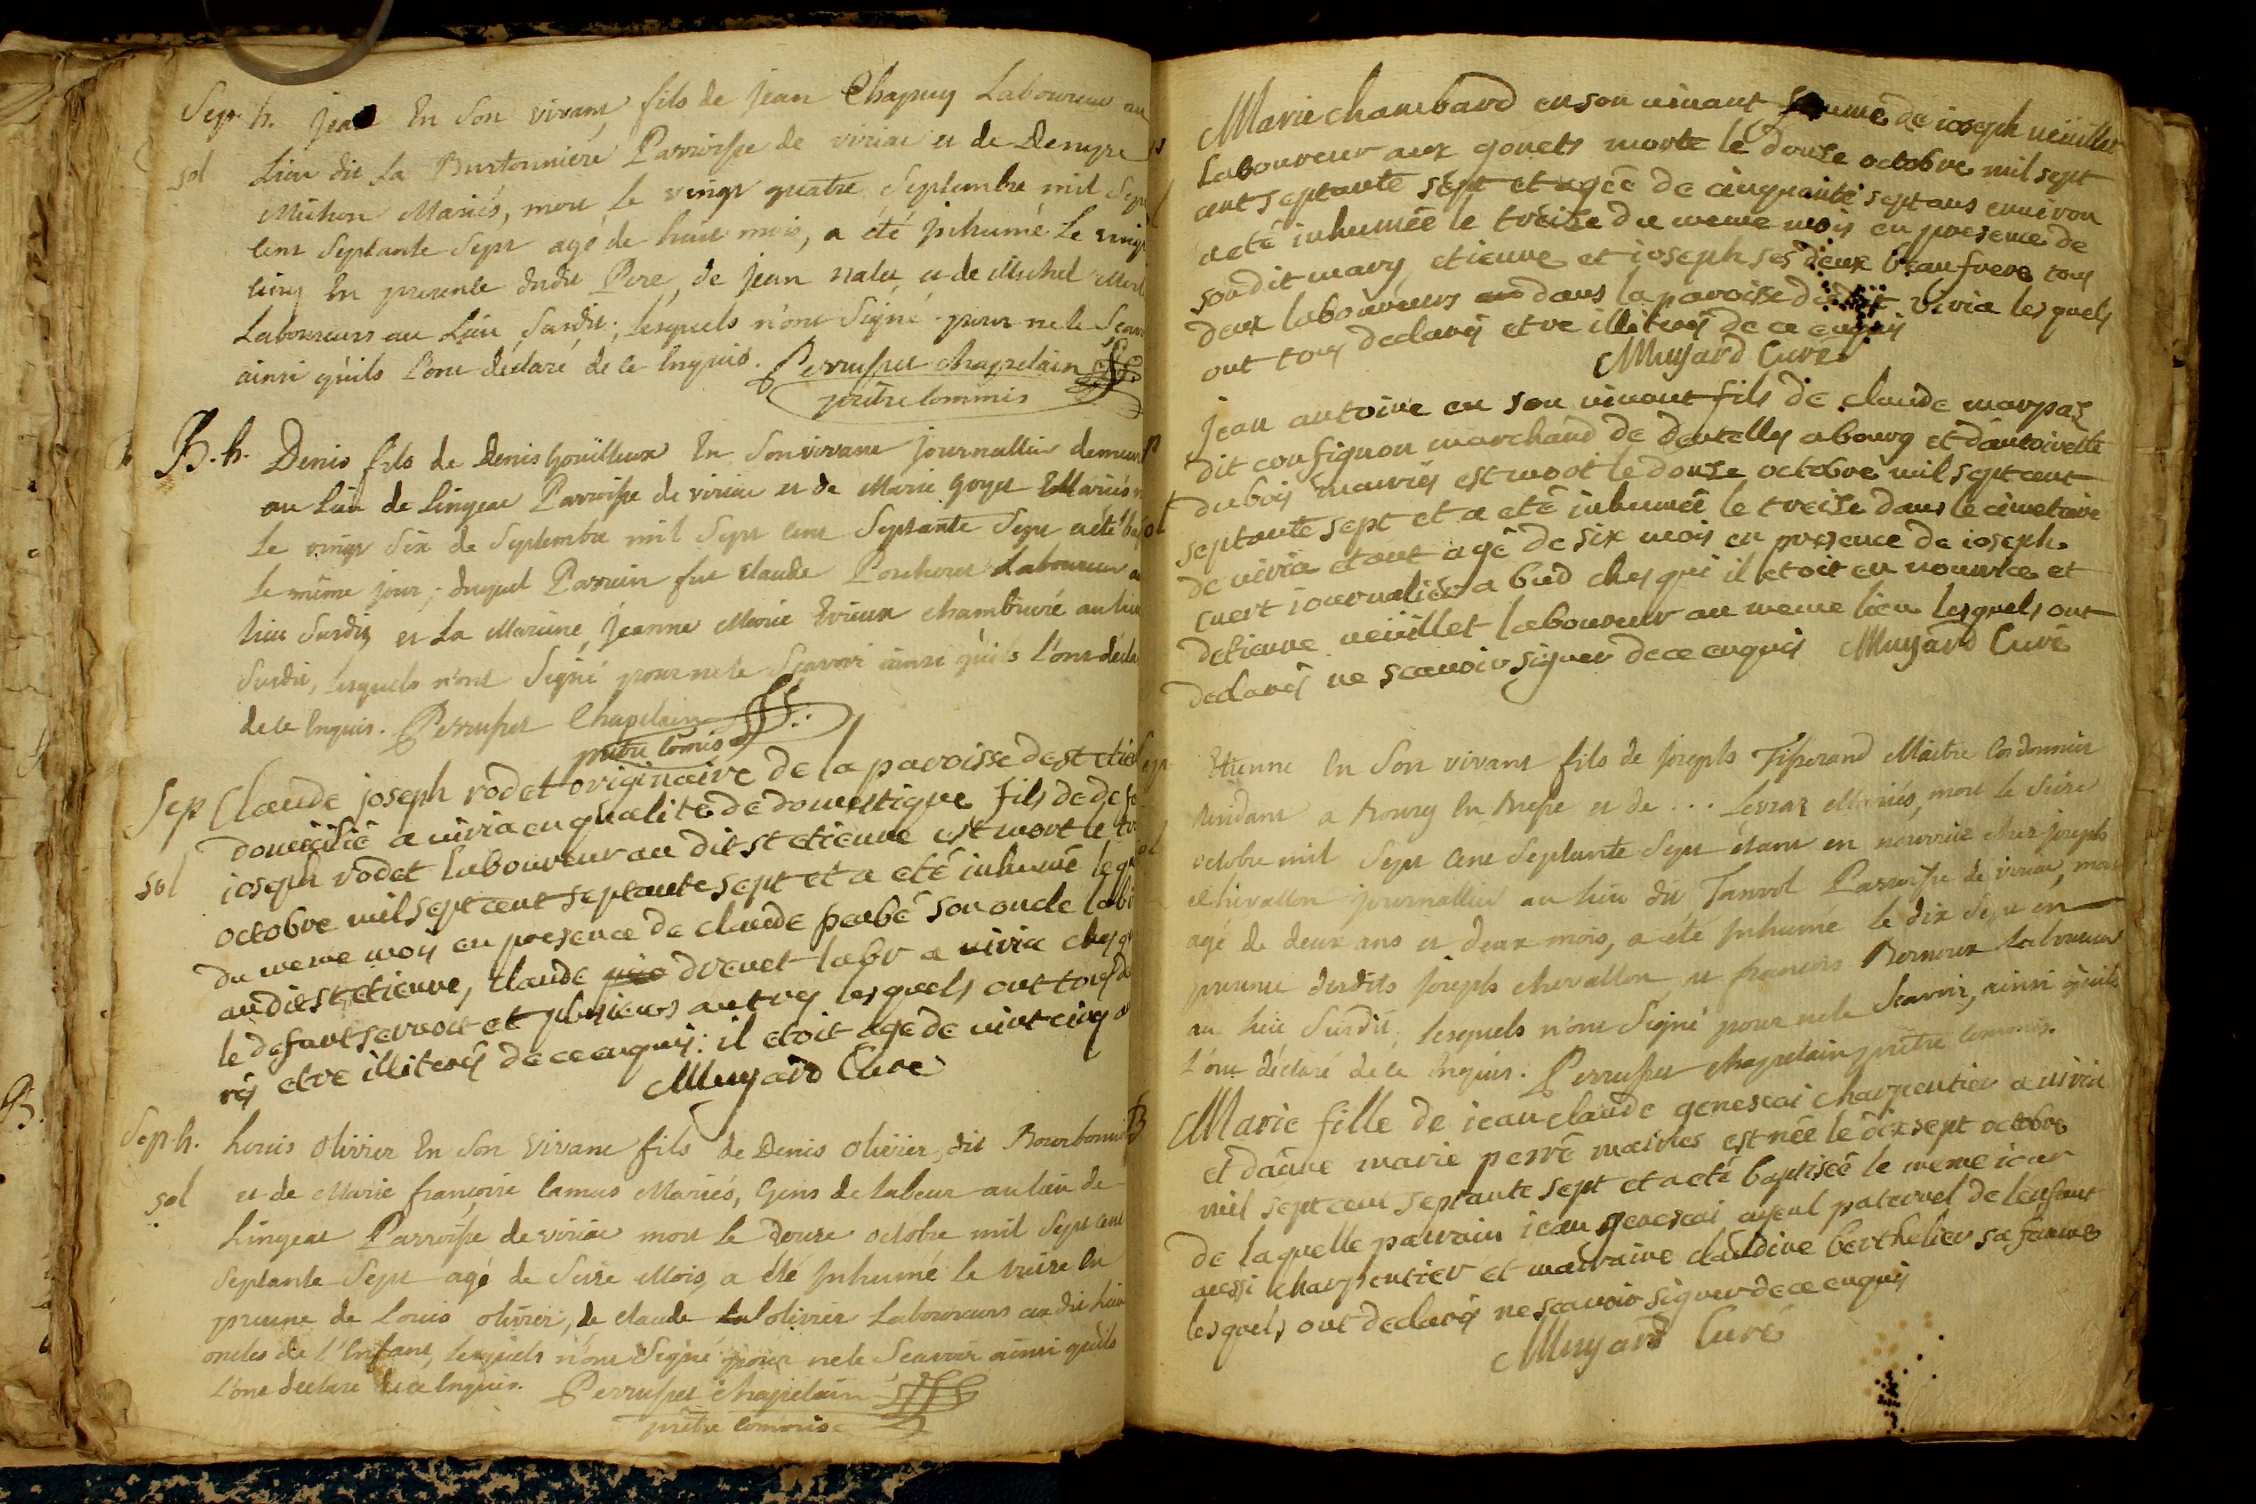 Sep h. Jean En Son vivant fils de Jean Chapuy Laboureur au
sol Lieu dit La Burtonniere Parroisse de viriac et de Denyse
Michon Mariés, mort le vingt quatre Septembre mil Sept
Cent Septante Sept agé de huit mois, a été inhumé Le vingt
cinq En presence dudit Pere, de Jean et de Michel
Laboureurs au Lieu Susdit; lesquels n'ont Signé pour ne le Scavoir
ainsi qu'ils l'ont déclaré de ce Enquis. Perrusset chapelain
prêtre Commis
B. h. Denis fils de Denis Gouilleux En Son vivant journallier demeurt
au Lieu de Lingeat Parroisse de viriac et de Marie Goyet Mariés
Le vingt Six de Septembre mil Sept Cent Septante Sept a été
le même jour; duquel Parrain fut Claude Laboureur au
lieu Susdit, et La Marraine Jeanne Marie chambriere au lieu
Susdit, lesquels n'ont Signé pour ne le Sçavoir ainsi qu'ils l'ont décla
de ce Enquis. Perrusset Chapelain
prêtre Comis
Sep Claude joseph rodet originaire de la paroisse de st etie
domicilié a viria en qualité de domestique fils de de
sol ioseph rodet laboureur au dit st etienne est mort le
octobre mil sept cent septante sept et a eté inhumé le
du meme mois en presence de claude son oncle
audit st etienne, claude drevet labr a viria ches
le defunt servoit et plusieurs autres lesquels ont tous
rés etre illiterés de ce enquis: il etoit agé de vint cinq
Muyard Curé
Sep h. Louis Olivier En Son Vivant fils de Denis Olivier, dit
sol et de Marie françoise Camus Mariés, Gens de Labeur au lieu de
Lingeat Parroisse de viriac mort le douze octobre mil Sept Cent
Septante Sept agé de Seize Mois, a été Inhumé le treize En
presence de Louis Olivier, de claude olivier Laboureurs au dit lieu
oncles de l'Enfant, lesquels n'ont Signé pour ne le Scavoir ainsi qu'ils
l'ont declaré de ce Enquis. Perrusset chapelain
prêtre Commis
Marie chambard en son vivant femme de ioseph veüillet
Laboureur aux gouets morte le douze octobre mil sept
cent septante sept et agée de cinquante sept ans environ
a eté inhumée le treize du meme mois en presence de
son dit mary etienne et ioseph ses deux beaufrere tous
deux laboureurs dans la paroisse dudit viria lesquels
ont tous declarés etre illiterés de ce enquis
Muyard Curé
Jean antoine en son vivant fils de claude marpaz
dit confignon marchand de dentelles a bourg et dantoinette
dubois mariés est mort le douze octobre mil sept cent
septante sept et a eté inhumée le treize dans le cimetiere
de viria etant agé de six mois en presence de ioseph
cuert iournalier a bud ches qui il etoit en nourice et
detienne veüillet laboureur au meme lieu lesquels ont
declarés ne scauoir signer de ce enquis Muyard Curé
Etienne En Son vivant fils de Joseph Tisserand Maitre Cordonnier
Residant a Bourg En Bresse et de ... Levraz Mariés, mort le Seize
octobre mil Sept Cent Septante Sept étant en nourrice chez joseph
chevallon journallier au lieu dit Tanvol Parroisse de viriac, mort
agé de deux ans et deux mois, a été Inhumé le dix Sept en
presence desdits Joseph chevallon et françois Laboureur
au lieu Susdit, lesquels n'ont Signé pour ne le Scavoir, ainsi qu'ils
l'ont déclaré de ce Enquis. Perrusset chapelain prêtre Commis.
Marie fille de iean claude genescai charpentier a viria
et danne marie perré mairies est née le dix sept octobre
mil sept cent septante sept et a eté baptisée le meme iour
de laquelle parrain iean genescai ayeul paternel de lenfant
aussi charpentier et marraine claudine berthelier sa femme
lesquels ont declarés ne scavoir signer de ce enquis
Muyard Curé